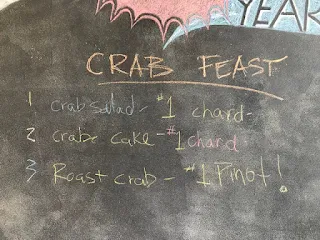 YEAR
CRAB FEAST
1 crab salad - #1 chard -
2 crabe cake - #1 chard
3 Roast crab - #1 Pinot!